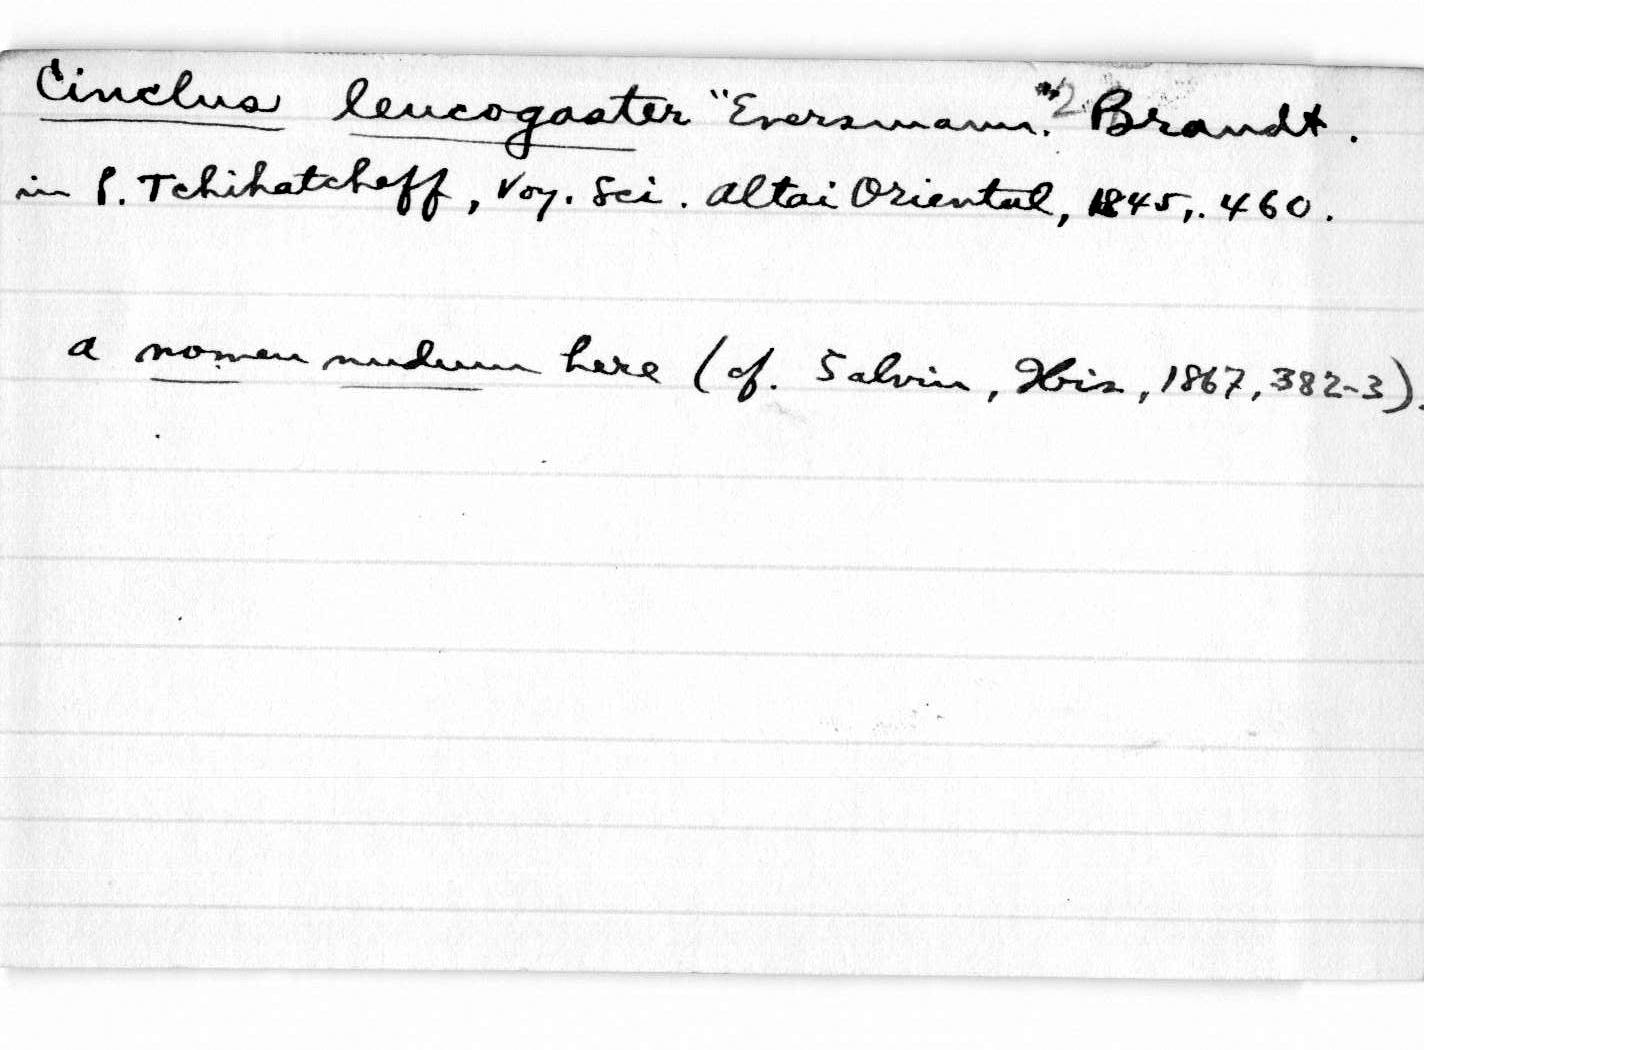 Cinclus leucogaster "Eversmann." Brandt.
in P. Tchihatcheff, Voy. Sci. Altai Oriental, 1845, . 460.
a nomen nudum here (cf. Salvin, Ibis, 1867, 382-3).